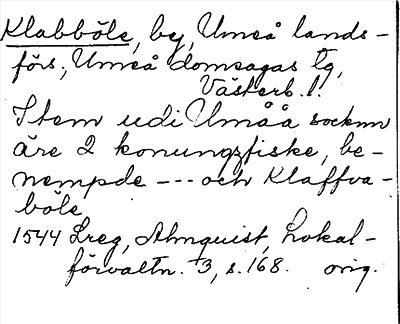 Klabböle, by, Umeå lands-
förs., Umeå domsagas tg,
Västerb. l.
Item udi Umåå socknn
äre 2 konungzfiske, be-
nempde --- och Klaffva-
böle
1544 Lreg, Almquist, Lokal-
förvaltn. 3, s. 168. orig.